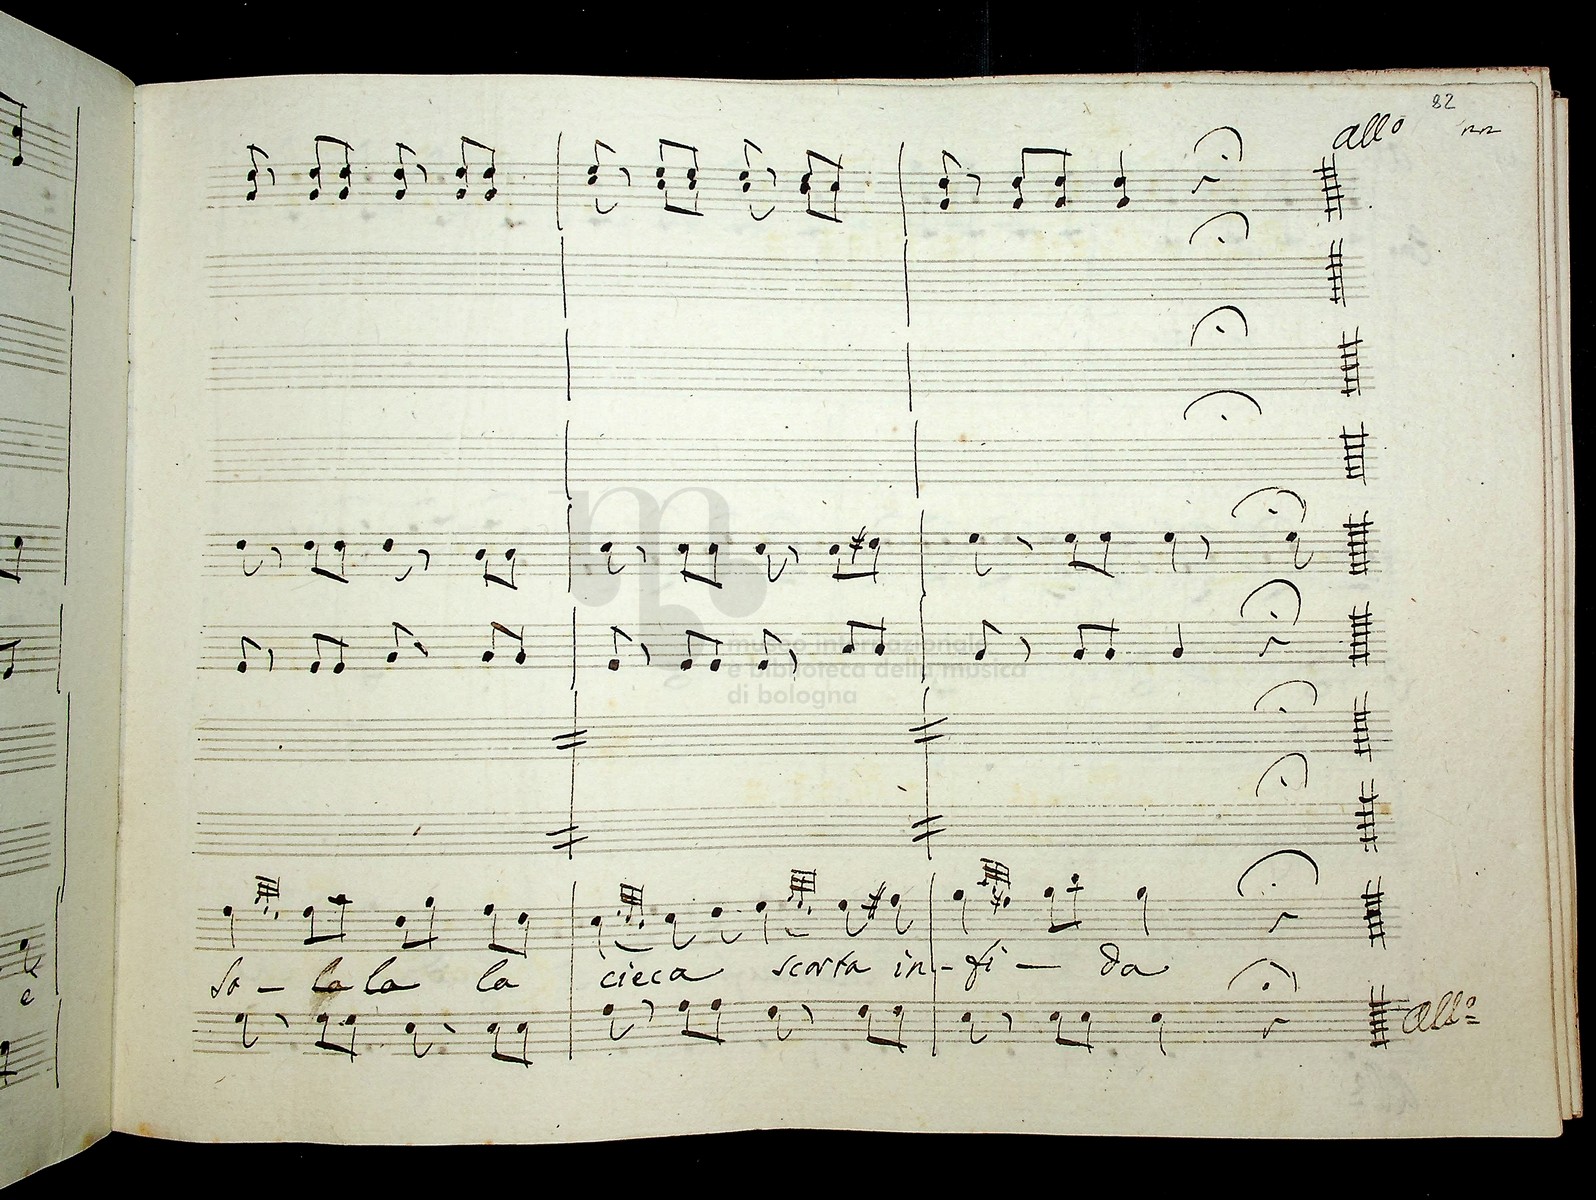 82
allo
m
museo internazionale
e biblioteca della musica
di bologna
so - la la la cieca scorta in - fi - da
allo